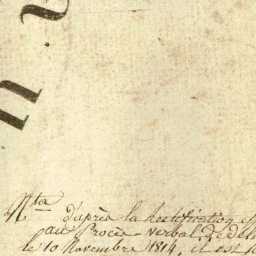 n.
Nta d'après la Rectification
au Procès-verbal de dél
le 10 Novembre 1814, il est